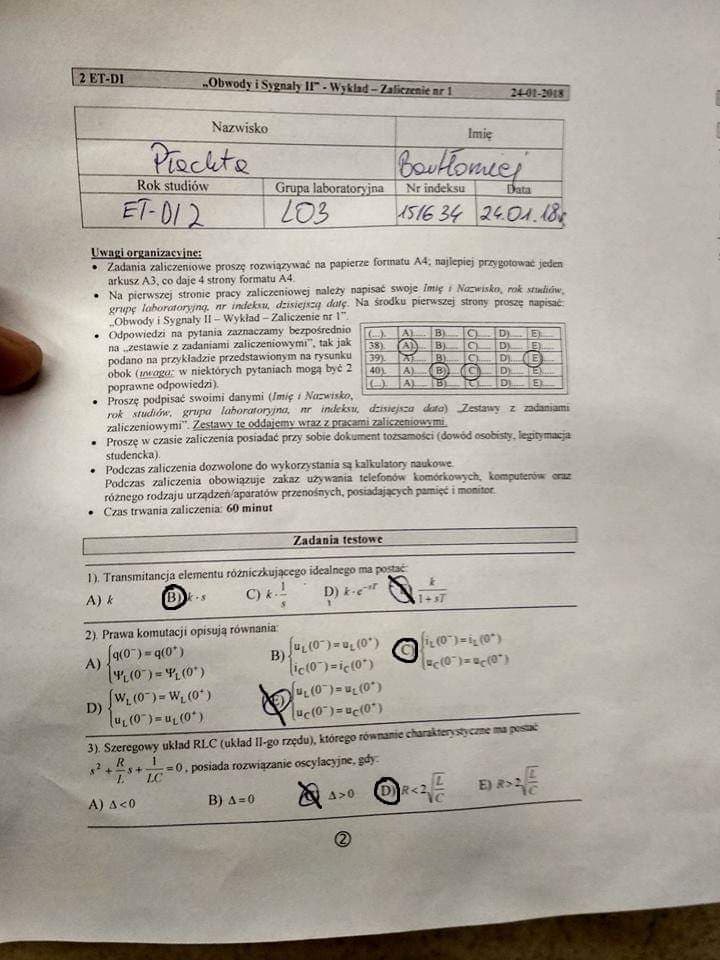 2 ET-DI „Obwody i Sygnały II” - Wykład – Zaliczenie nr 1 24-01-2018
Nazwisko Imię
Płachta Bartłomiej
Rok studiów Grupa laboratoryjna Nr indeksu Data
ET-DI 2 L03 151634 24.01.18r
Uwagi organizacyjne:
• Zadania zaliczeniowe proszę rozwiązywać na papierze formatu A4; najlepiej przygotować jeden
arkusz A3, co daje 4 strony formatu A4.
• Na pierwszej stronie pracy zaliczeniowej należy napisać swoje Imię i Nazwisko, rok studiów,
grupę laboratoryjną, nr indeksu, dzisiejszą datę. Na środku pierwszej strony proszę napisać:
„Obwody i Sygnały II – Wykład – Zaliczenie nr 1”.
• Odpowiedzi na pytania zaznaczamy bezpośrednio
na „zestawie z zadaniami zaliczeniowymi”, tak jak
podano na przykładzie przedstawionym na rysunku
obok (uwaga: w niektórych pytaniach mogą być 2
poprawne odpowiedzi).
(...). A)..... B)..... C)..... D)..... E).....
38). A)..... B)..... C)..... D)..... E).....
39). A)..... B)..... C)..... D)..... E).....
40). A)..... B)..... C)..... D)..... E).....
(...). A)..... B)..... C)..... D)..... E).....
• Proszę podpisać swoimi danymi (Imię i Nazwisko,
rok studiów, grupa laboratoryjna, nr indeksu, dzisiejsza data) „Zestawy z zadaniami
zaliczeniowymi”. Zestawy te oddajemy wraz z pracami zaliczeniowymi.
• Proszę w czasie zaliczenia posiadać przy sobie dokument tożsamości (dowód osobisty, legitymacja
studencka).
• Podczas zaliczenia dozwolone do wykorzystania są kalkulatory naukowe.
Podczas zaliczenia obowiązuje zakaz używania telefonów komórkowych, komputerów oraz
różnego rodzaju urządzeń/aparatów przenośnych, posiadających pamięć i monitor.
• Czas trwania zaliczenia: 60 minut
Zadania testowe
1). Transmitancja elementu różniczkującego idealnego ma postać:
A) k B) k·s C) k·1/s D) k·e^(-sT) E) k/(1+sT)
2). Prawa komutacji opisują równania:
A) {q(0⁻)=q(0⁺) Ψ_L(0⁻)=Ψ_L(0⁺) B) {u_L(0⁻)=u_L(0⁺) i_C(0⁻)=i_C(0⁺) C) {i_L(0⁻)=i_L(0⁺) u_C(0⁻)=u_C(0⁺)
D) {W_L(0⁻)=W_L(0⁺) u_L(0⁻)=u_L(0⁺) E) {u_L(0⁻)=u_L(0⁺) u_C(0⁻)=u_C(0⁺)
3). Szeregowy układ RLC (układ II-go rzędu), którego równanie charakterystyczne ma postać
s² + R/L s + 1/LC = 0, posiada rozwiązanie oscylacyjne, gdy:
A) Δ<0 B) Δ=0 C) Δ>0 D) R<2√(L/C) E) R>2√(L/C)
2